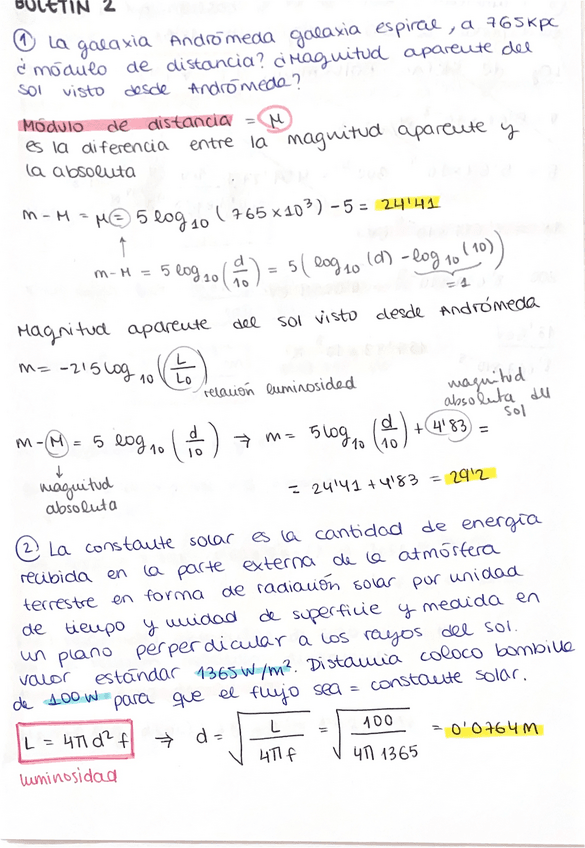 BOLETÍN 2
① La galaxia Andrómeda galaxia espiral, a 765Kpc
¿módulo de distancia? ¿Magnitud aparente del
sol visto desde Andrómeda?
Módulo de distancia = μ
es la diferencia entre la magnitud aparente y
la absoluta
m - M = μ = 5 log10 (765 x 10³) - 5 = 24'41
↑
m - M = 5 log10 (d/10) = 5 (log10 (d) - log10 (10))
= 1
Magnitud aparente del sol visto desde Andrómeda
m = -2'5 log10 (L/L0)
relación luminosidad
magnitud
absoluta del
sol
m - M = 5 log10 (d/10) → m = 5 log10 (d/10) + 4'83 =
↓
magnitud
absoluta
= 24'41 + 4'83 = 29'2
② La constante solar es la cantidad de energía
recibida en la parte externa de la atmósfera
terrestre en forma de radiación solar por unidad
de tiempo y unidad de superficie y medida en
un plano perperdicular a los rayos del sol.
valor estándar 1365 W/m². Distancia coloco bombilla
de 100 W para que el flujo sea = constante solar.
L = 4π d² f → d = √(L / 4π f) = √(100 / 4π 1365) = 0'0764 m
luminosidad